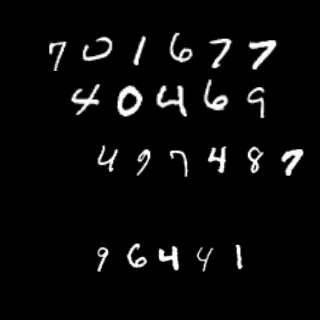 701677
40469
497487
96441